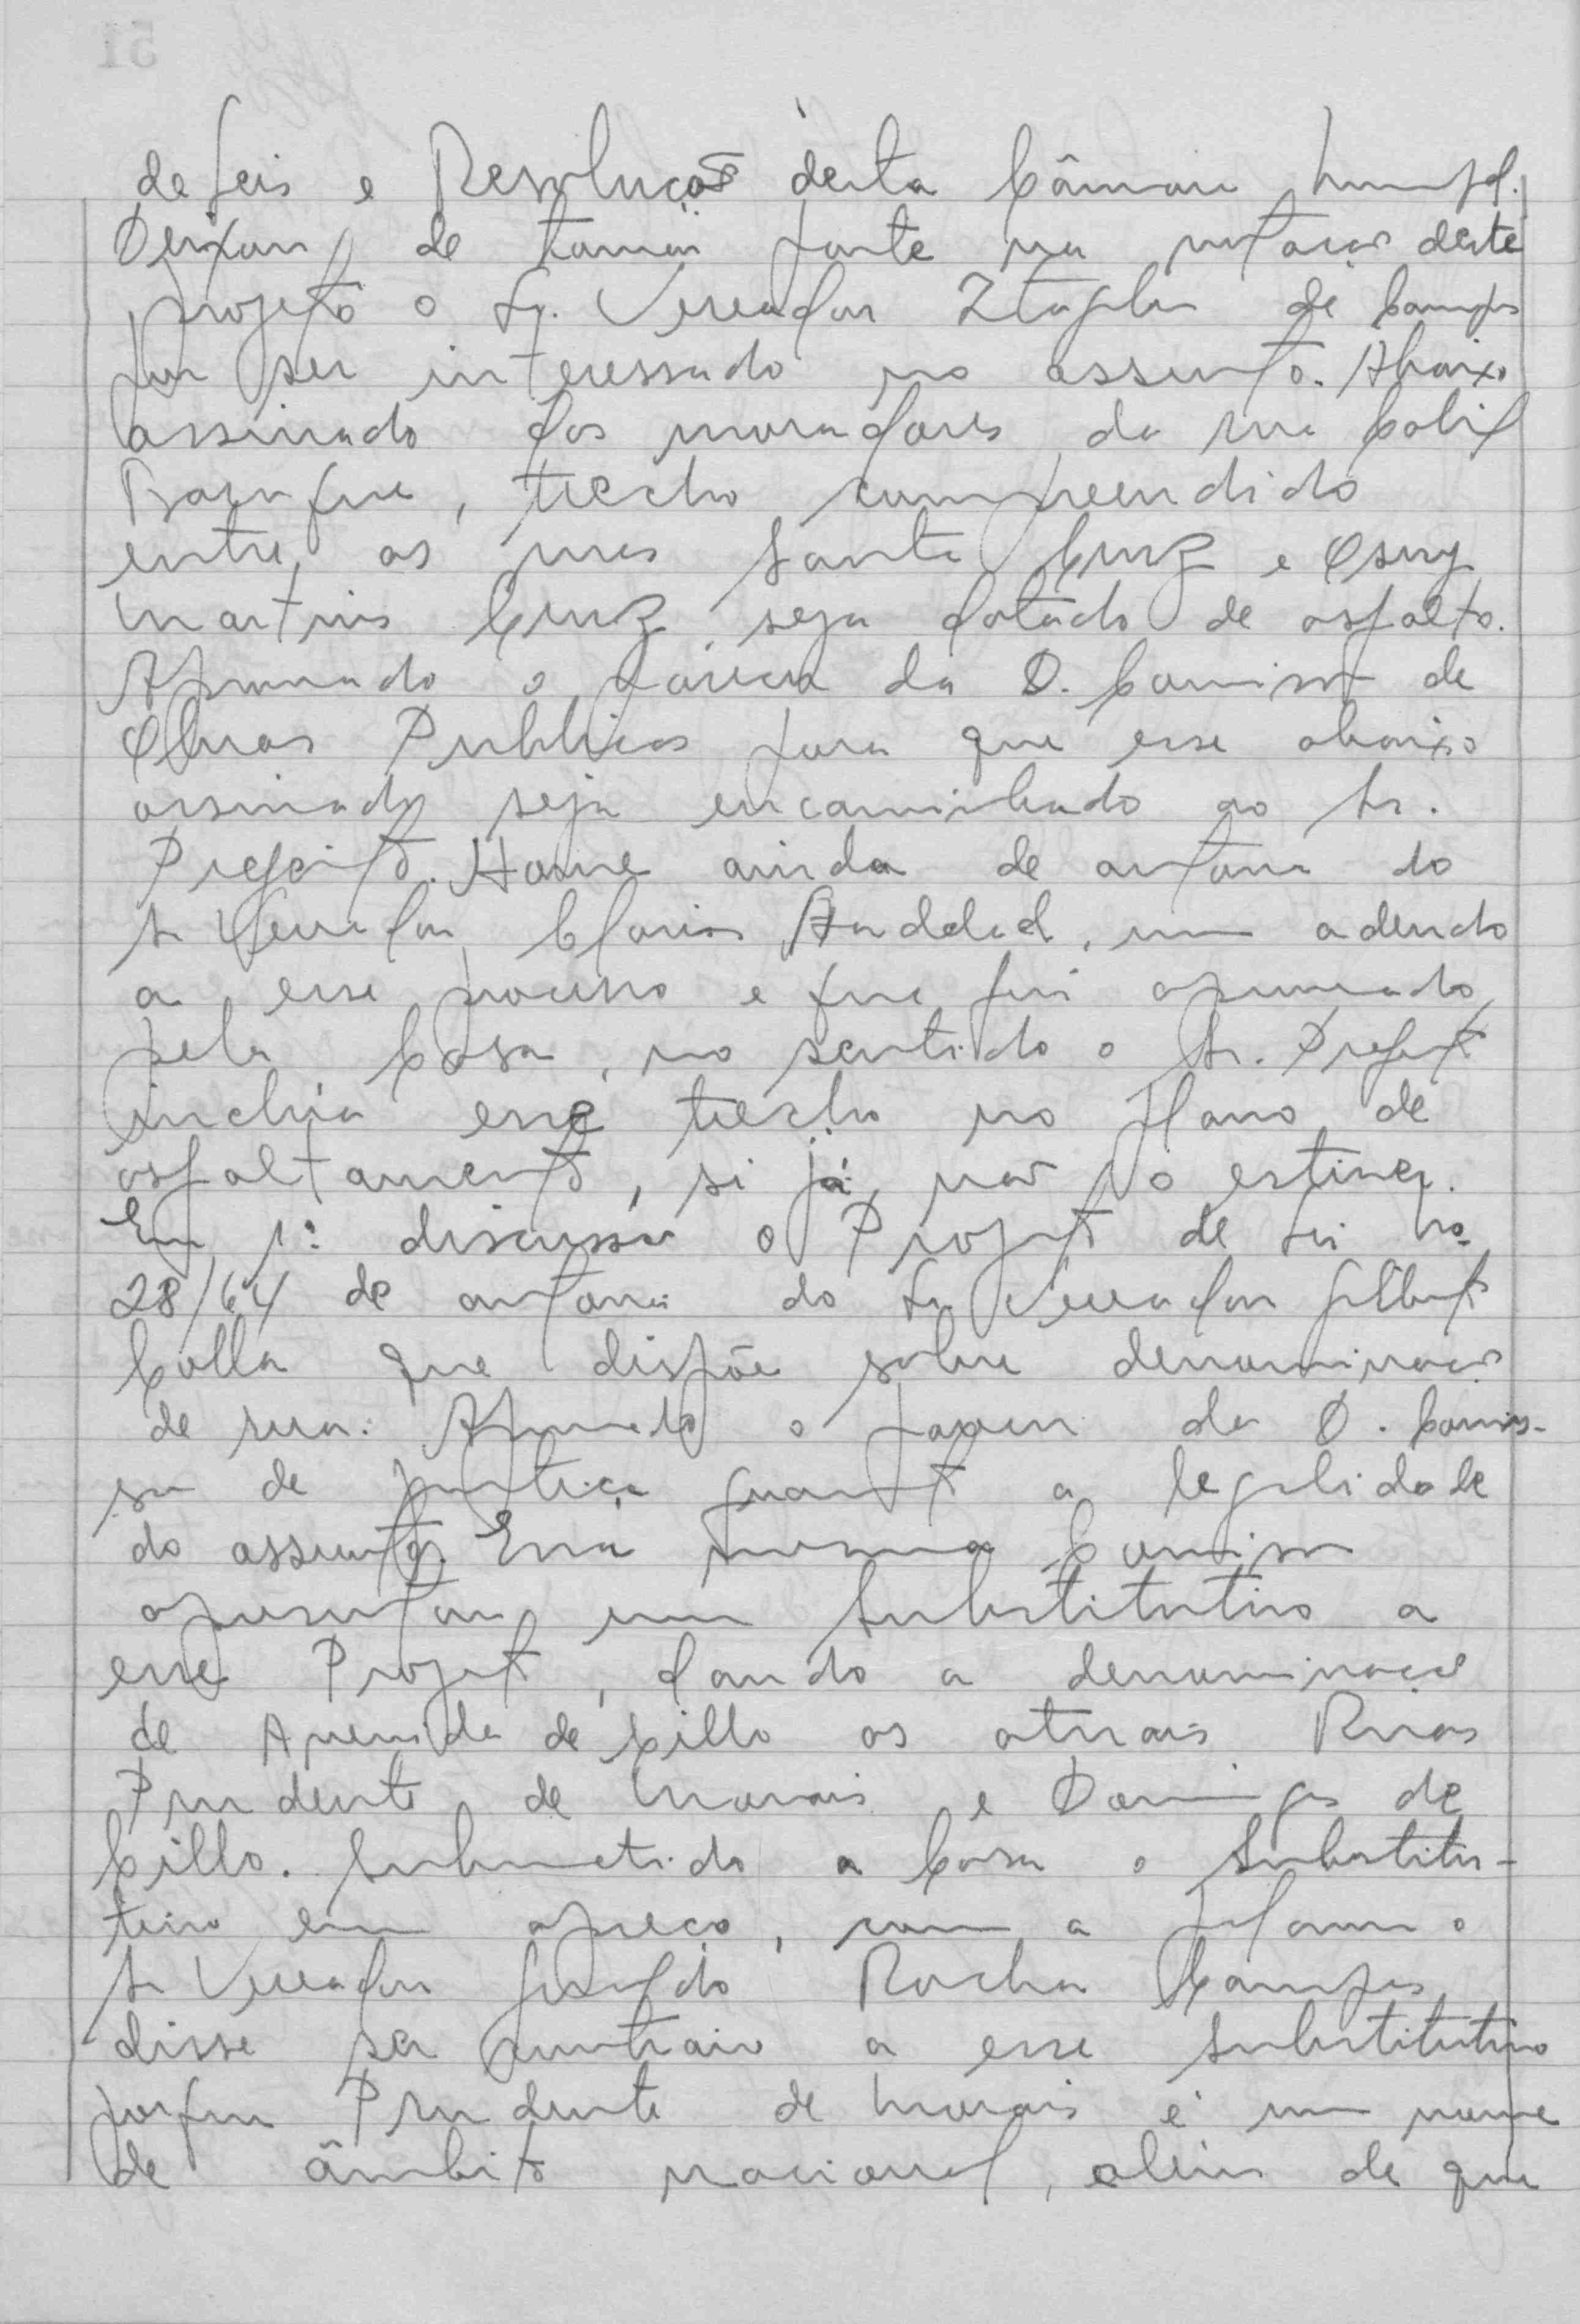 de Leis e Resoluções desta Câmara Municipal.
Deixou de tomar parte na votação deste
projeto o Sr. Vereador de Campos
por ser interessado no assunto. Abaixo
assinado dos moradores da rua Calil
Baruque, trecho compreendido
entre as ruas Santa Cruz e Osny
Martins Cruz, seja dotado de asfalto.
Aprovado o parecer da D. Comissão de
Obras Publicas para que esse abaixo
assinado seja encaminhado ao Sr.
Prefeito. Houve ainda de autoria do
Sr Vereador Haddad, um adendo
a esse processo e que foi aprovado
pela Casa, no sentido o Sr. Prefeito
inclúa esse trecho no plano de
asfaltamento, si já não o estiver.
Em 1ª discussão o Projeto de Lei no.
28/64 de autoria do Sr Vereador Gilberto
Colla que dispõe sobre denominação
de rua: Aprovado o parecer da D. Comis-
são de Justiça quanto a legalidade
do assunto. Essa mesma Comissão
apresentou um Substitutivo a
esse Projeto, dando a denominação
de Avenida de Cillo as atuais Ruas
Prudente de Morais e Domingos de
Cillo. Submetido a Casa o Substitu-
tivo em apreço, com a palavra o
Sr Vereador Geraldo Rocha Campos
disse ser contrario a esse substitutivo
porque Prudente de Morais é um nome
de âmbito nacional, alem de que